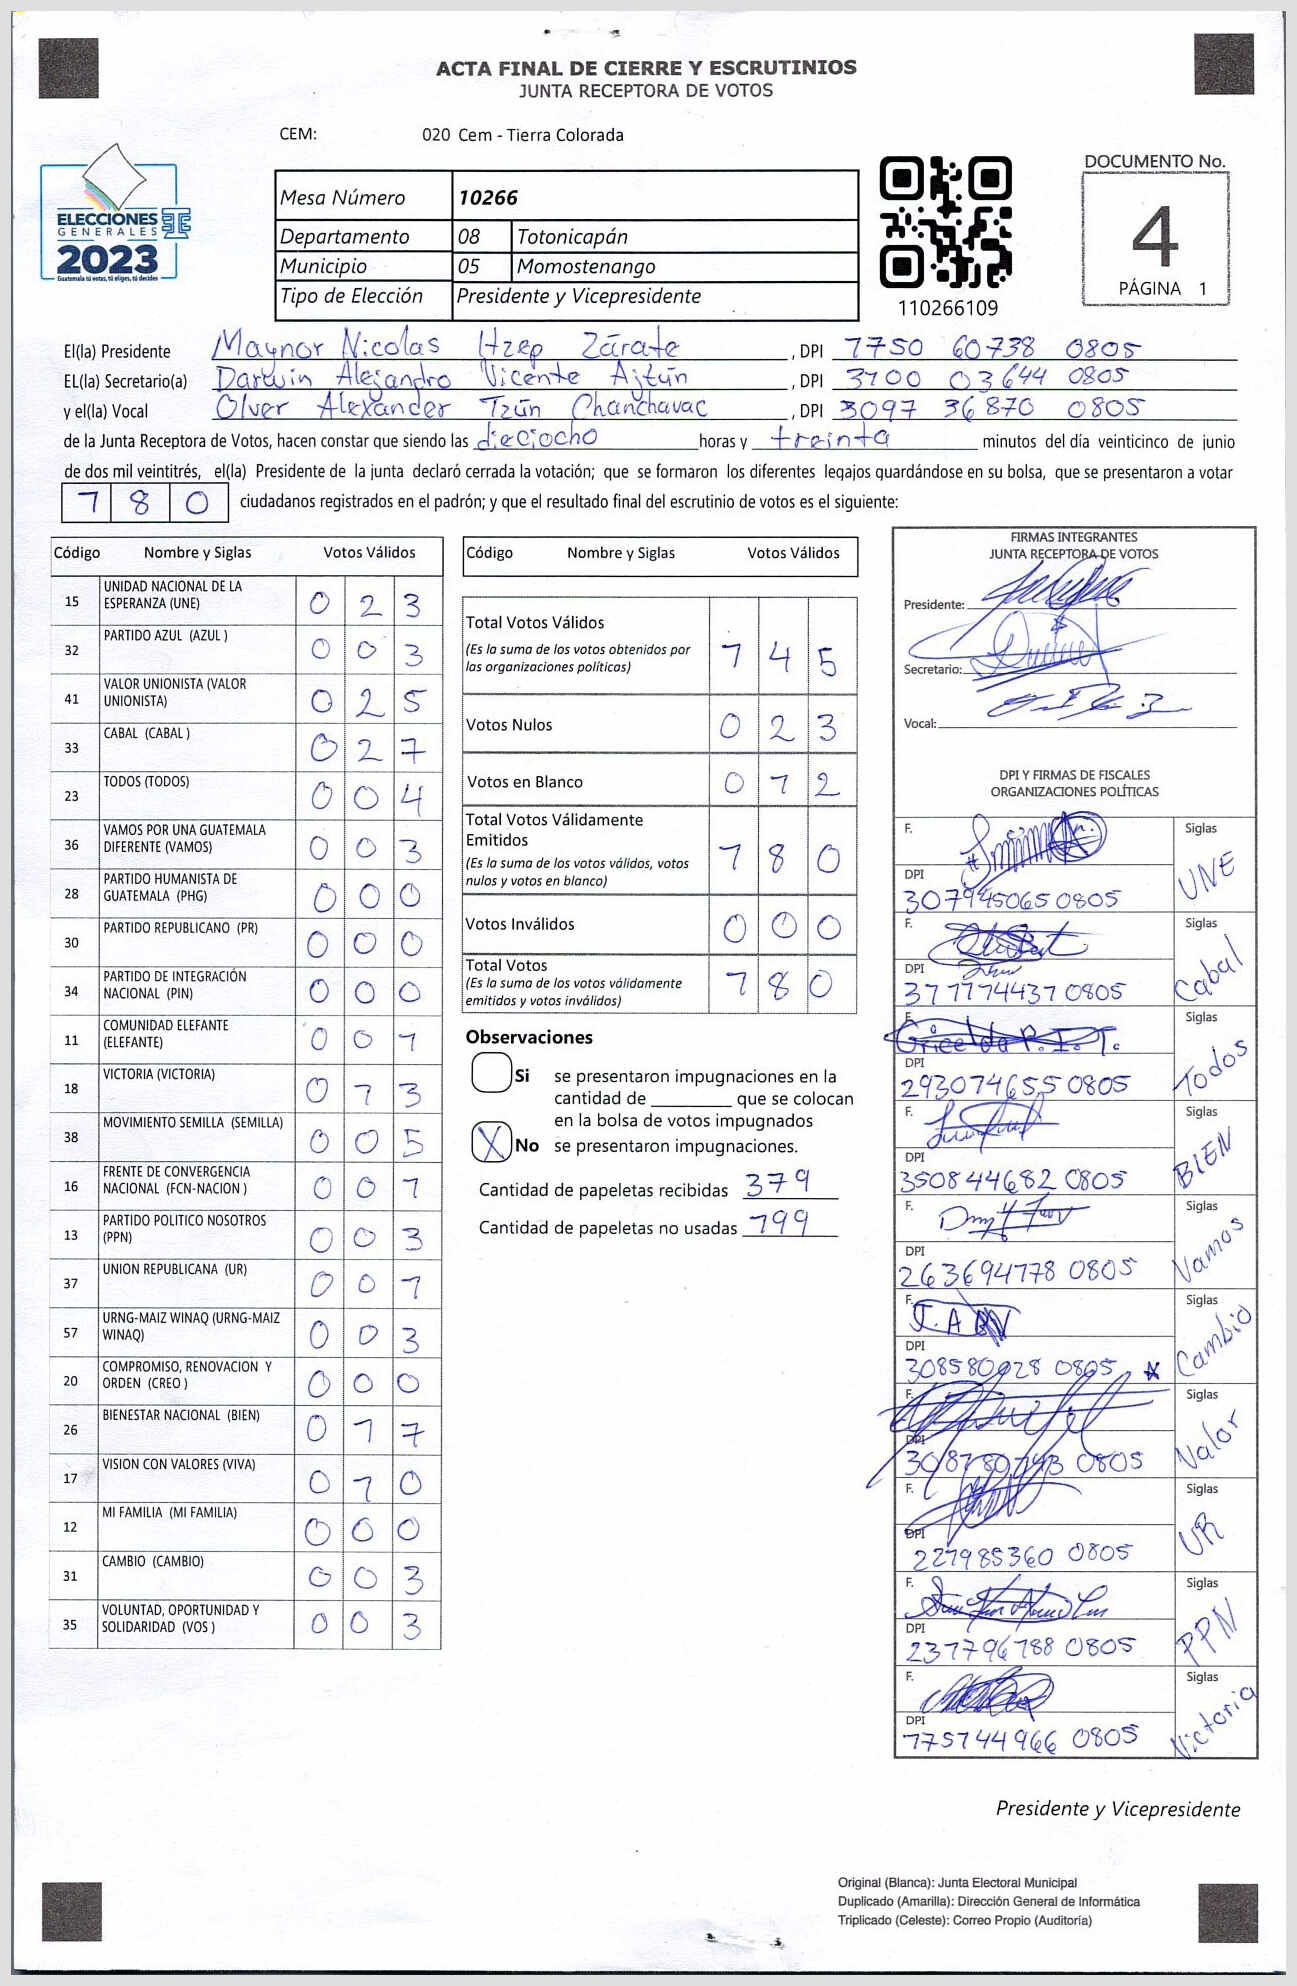 ACTA FINAL DE CIERRE Y ESCRUTINIOS
JUNTA RECEPTORA DE VOTOS
CEM: 020 Cem - Tierra Colorada
ELECCIONES
GENERALES
2023
Guatemala tú votas, tú eliges, tú decides
Mesa Número 10266
Departamento 08 Totonicapán
Municipio 05 Momostenango
Tipo de Elección Presidente y Vicepresidente
110266109
DOCUMENTO No.
4
PÁGINA 1
El(la) Presidente Maynor Nicolas Itzep Zárate , DPI 1750 60738 0805
EL(la) Secretario(a) Darwin Alejandro Vicente Ajtún , DPI 3100 03644 0805
y el(la) Vocal Olver Alexander Tzún Chanchavac , DPI 3097 36870 0805
de la Junta Receptora de Votos, hacen constar que siendo las dieciocho horas y treinta minutos del día veinticinco de junio
de dos mil veintitrés, el(la) Presidente de la junta declaró cerrada la votación; que se formaron los diferentes legajos guardándose en su bolsa, que se presentaron a votar
1 8 0 ciudadanos registrados en el padrón; y que el resultado final del escrutinio de votos es el siguiente:
Código Nombre y Siglas Votos Válidos
15 UNIDAD NACIONAL DE LA ESPERANZA (UNE) 0 2 3
32 PARTIDO AZUL (AZUL ) 0 0 3
41 VALOR UNIONISTA (VALOR UNIONISTA) 0 2 5
33 CABAL (CABAL ) 0 2 7
23 TODOS (TODOS) 0 0 4
36 VAMOS POR UNA GUATEMALA DIFERENTE (VAMOS) 0 0 3
28 PARTIDO HUMANISTA DE GUATEMALA (PHG) 0 0 0
30 PARTIDO REPUBLICANO (PR) 0 0 0
34 PARTIDO DE INTEGRACIÓN NACIONAL (PIN) 0 0 0
11 COMUNIDAD ELEFANTE (ELEFANTE) 0 0 1
18 VICTORIA (VICTORIA) 0 1 3
38 MOVIMIENTO SEMILLA (SEMILLA) 0 0 5
16 FRENTE DE CONVERGENCIA NACIONAL (FCN-NACION ) 0 0 1
13 PARTIDO POLITICO NOSOTROS (PPN) 0 0 3
37 UNION REPUBLICANA (UR) 0 0 1
57 URNG-MAIZ WINAQ (URNG-MAIZ WINAQ) 0 0 3
20 COMPROMISO, RENOVACION Y ORDEN (CREO ) 0 0 0
26 BIENESTAR NACIONAL (BIEN) 0 1 7
17 VISION CON VALORES (VIVA) 0 1 0
12 MI FAMILIA (MI FAMILIA) 0 0 0
31 CAMBIO (CAMBIO) 0 0 3
35 VOLUNTAD, OPORTUNIDAD Y SOLIDARIDAD (VOS ) 0 0 3
Código Nombre y Siglas Votos Válidos
Total Votos Válidos 1 4 5
(Es la suma de los votos obtenidos por
las organizaciones políticas)
Votos Nulos 0 2 3
Votos en Blanco 0 1 2
Total Votos Válidamente
Emitidos 1 8 0
(Es la suma de los votos válidos, votos
nulos y votos en blanco)
Votos Inválidos 0 0 0
Total Votos 1 8 0
(Es la suma de los votos válidamente
emitidos y votos inválidos)
Observaciones
Si se presentaron impugnaciones en la
cantidad de ________ que se colocan
en la bolsa de votos impugnados
X No se presentaron impugnaciones.
Cantidad de papeletas recibidas 379
Cantidad de papeletas no usadas 199
FIRMAS INTEGRANTES
JUNTA RECEPTORA DE VOTOS
Presidente:
Secretario:
Vocal:
DPI Y FIRMAS DE FISCALES
ORGANIZACIONES POLÍTICAS
F. Siglas UNE
DPI 307945065 0805
F. Siglas Cabal
DPI 0805
F. Siglas Todos
DPI 293074655 0805
F. Siglas BIEN
DPI 350844682 0805
F. Siglas Vamos
DPI 263694178 0805
F. Siglas Cambio
DPI 308580928 0805
F. Siglas Valor
DPI 0805
F. Siglas UR
DPI 221985360 0805
F. Siglas PPN
DPI 237796188 0805
F. Siglas Victoria
DPI 175144966 0805
Presidente y Vicepresidente
Original (Blanca): Junta Electoral Municipal
Duplicado (Amarilla): Dirección General de Informática
Triplicado (Celeste): Correo Propio (Auditoría)